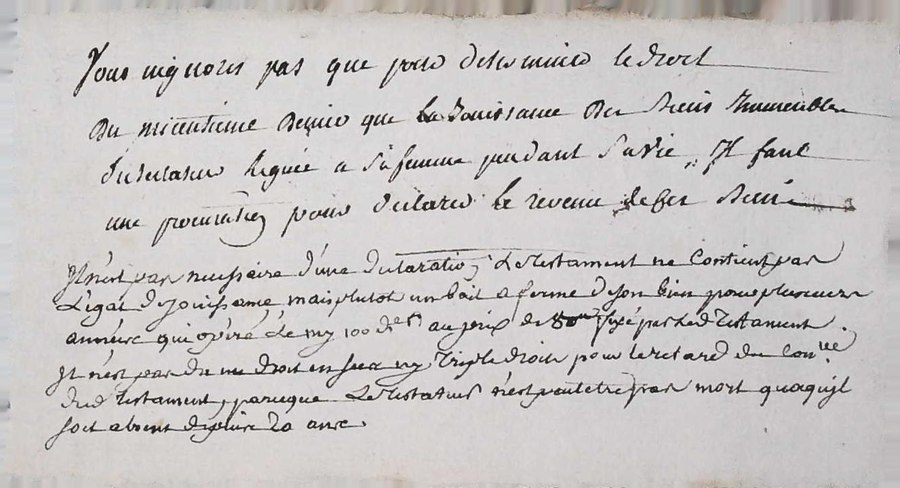 Vous nignorés pas que pour determiner le droit
du mi centieme denier que la Jouissance des biens Immeubles
du testateur leguée a sa femme pendant sa vie, Il faut
une procuration pour declarer le revenu de ses biens
Il n'est pas necessaire d'une declaration, Le testament ne contient pas
Legat de jouissance mais plutot un bail a ferme de son bien pour plusieurs
années qui opere le my 100 d.er au prix de fixé par led testament.
Il n'est pas du un droit en sus ny triple droit pour le retard du con.lle
dud testament, parceque Le testateur n'est peutetre pas mort quoiqu'il
soit absent depuis 20 ans.